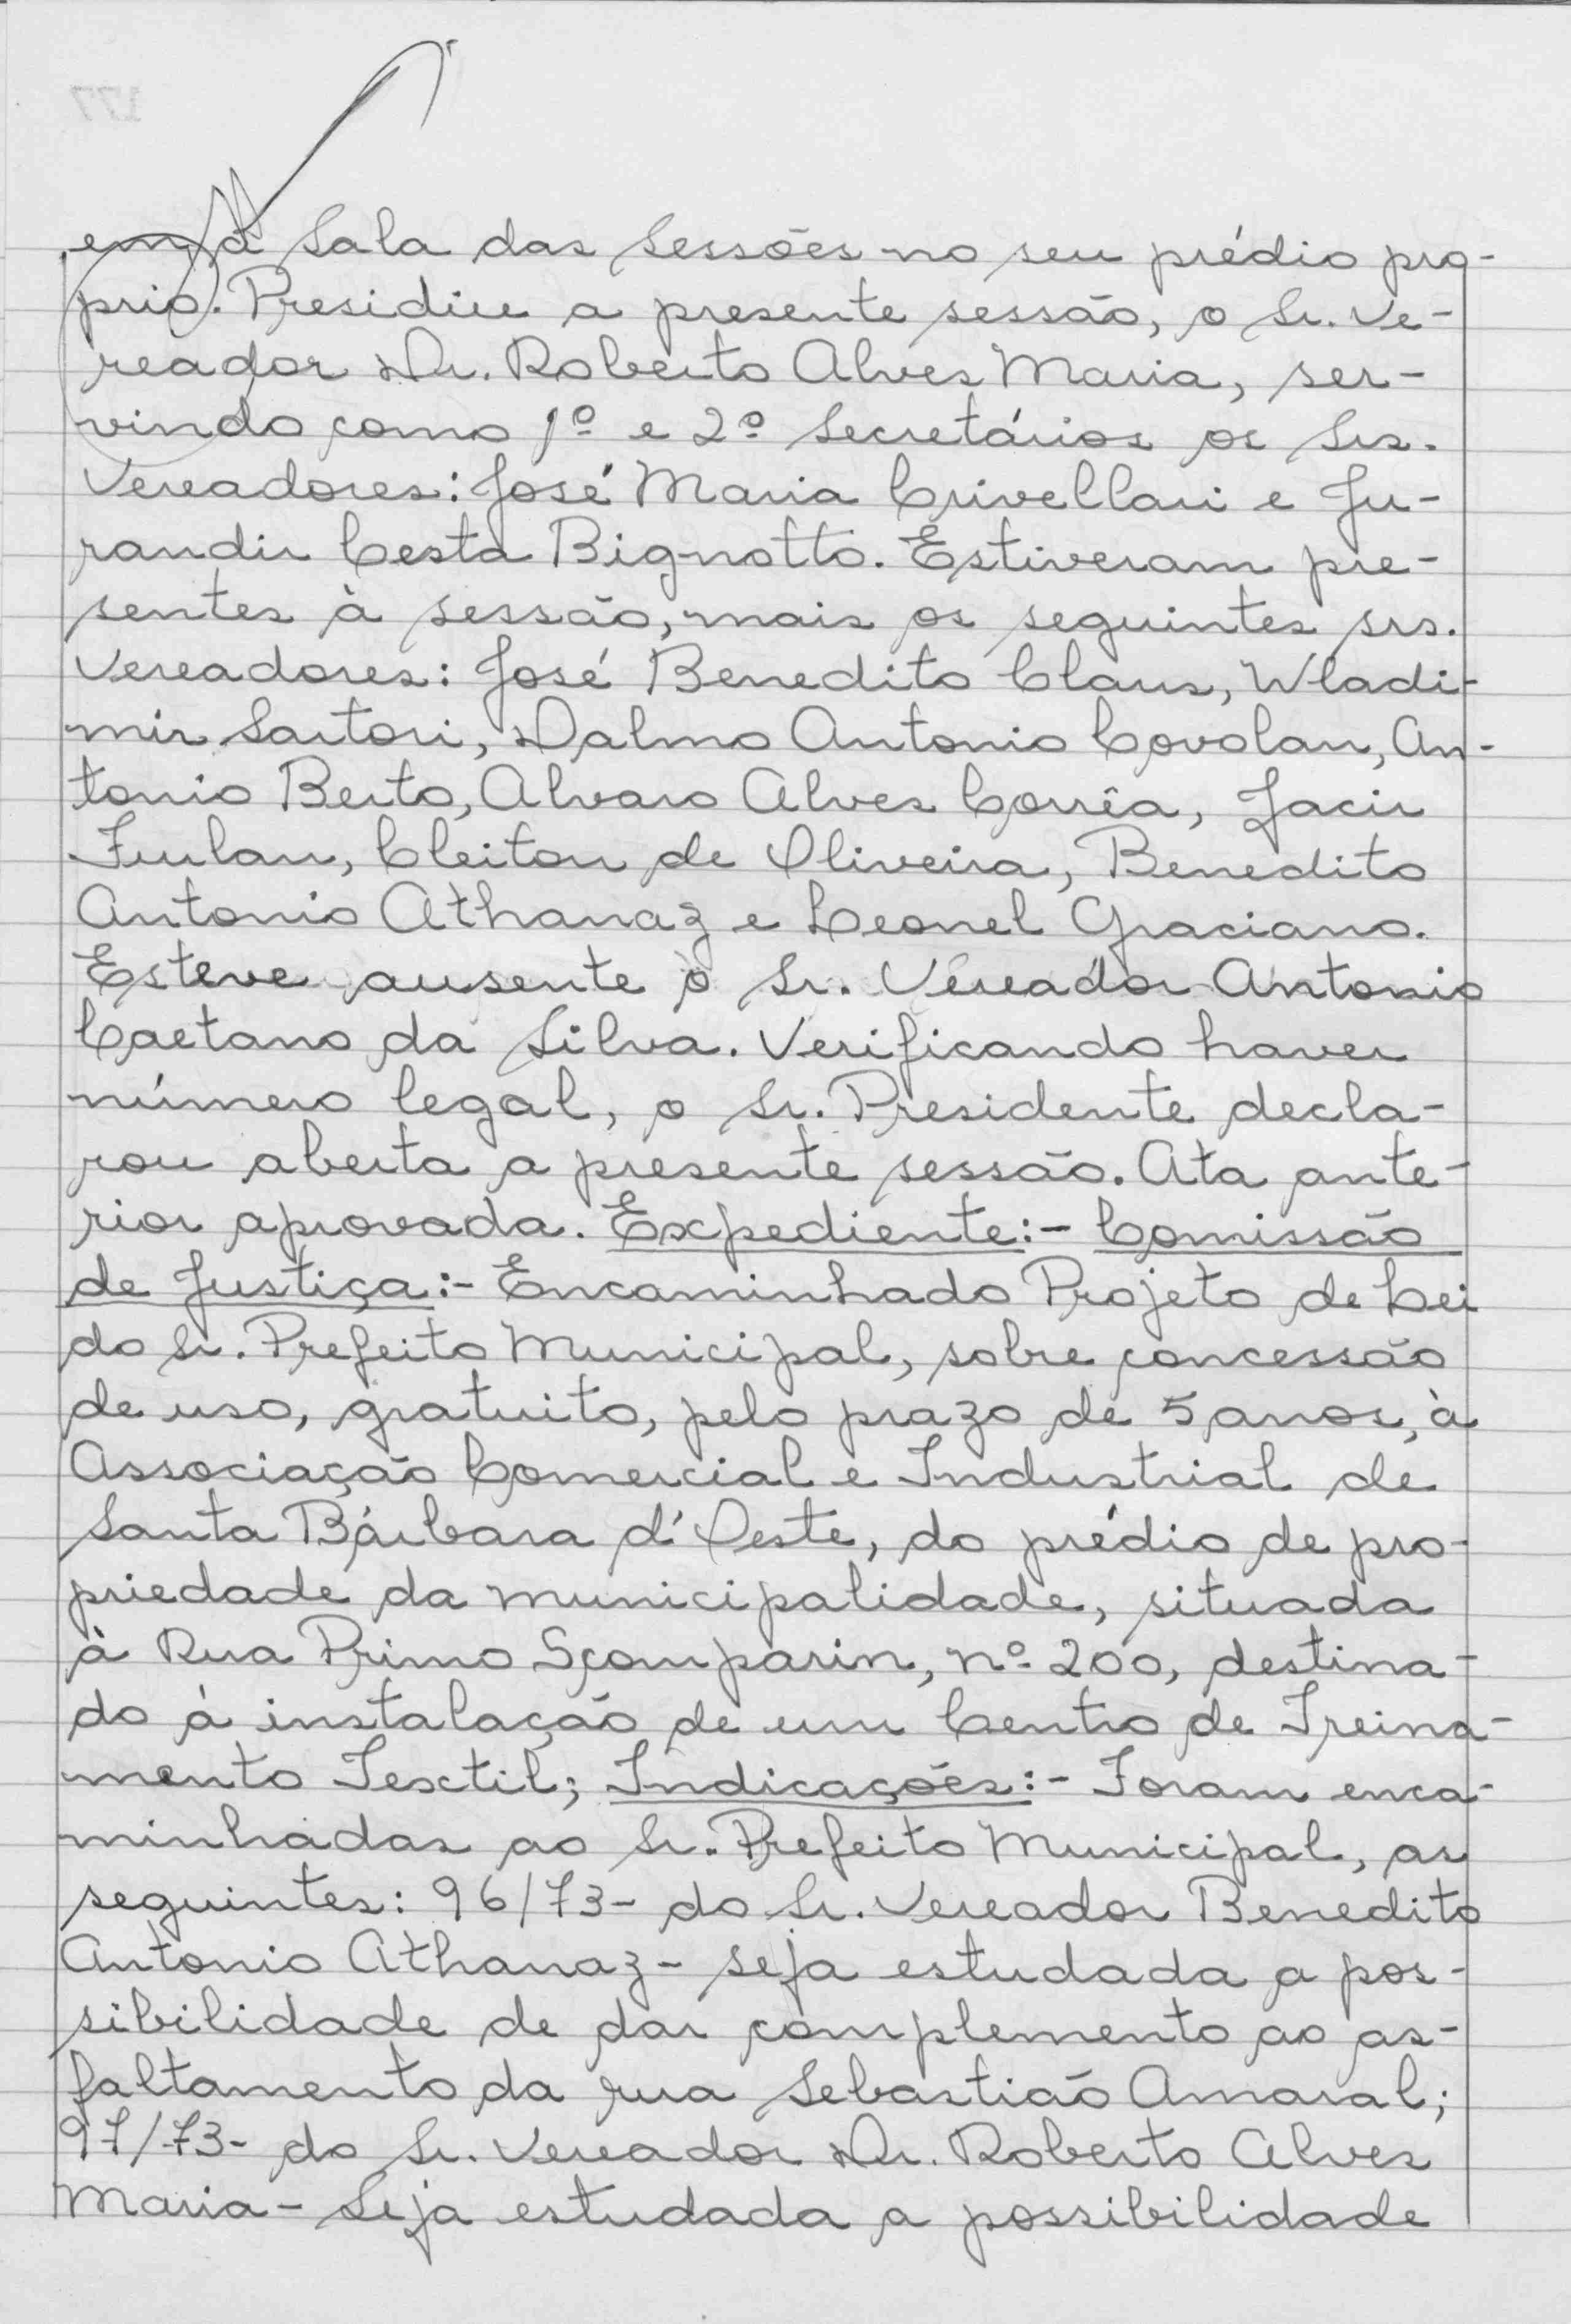 em a Sala das Sessões no seu prédio pró-
prio. Presidiu a presente sessão, o Sr. Ve-
reador Dr. Roberto Alves Maria, ser-
vindo como 1º e 2º Secretários os Srs.
Vereadores: José Maria Crivellari e Ju-
randir Cesta Bignotto. Estiveram pre-
sentes à sessão, mais os seguintes srs.
Vereadores: José Benedito Claus, Wladi-
mir Sartori, Dalmo Antonio Covolan, An-
tonio Berto, Alvaro Alves Corrêa, Jacir
Furlan, Cleiton de Oliveira, Benedito
Antonio Athanaz e Leonel Graciano.
Esteve ausente o Sr. Vereador Antonio
Caetano da Silva. Verificando haver
número legal, o Sr. Presidente decla-
rou aberta a presente sessão. Ata ante-
rior aprovada. Expediente:- Comissão
de Justiça:- Encaminhado Projeto de Lei
do Sr. Prefeito Municipal, sobre concessão
de uso, gratuito, pelo prazo de 5 anos, à
Associação Comercial e Industrial de
Santa Bárbara d'Oeste, do prédio de pro-
priedade da municipalidade, situada
à Rua Primo Scomparin, nº 200, destina-
do à instalação de um Centro de Treina-
mento Textil; Indicações:- Foram enca-
minhadas ao Sr. Prefeito Municipal, as
seguintes: 96/73- do Sr. Vereador Benedito
Antonio Athanaz - seja estudada a pos-
sibilidade de dar complemento ao as-
faltamento da rua Sebastião Amaral;
97/73- do Sr. Vereador Dr. Roberto Alves
Maria - Seja estudada a possibilidade